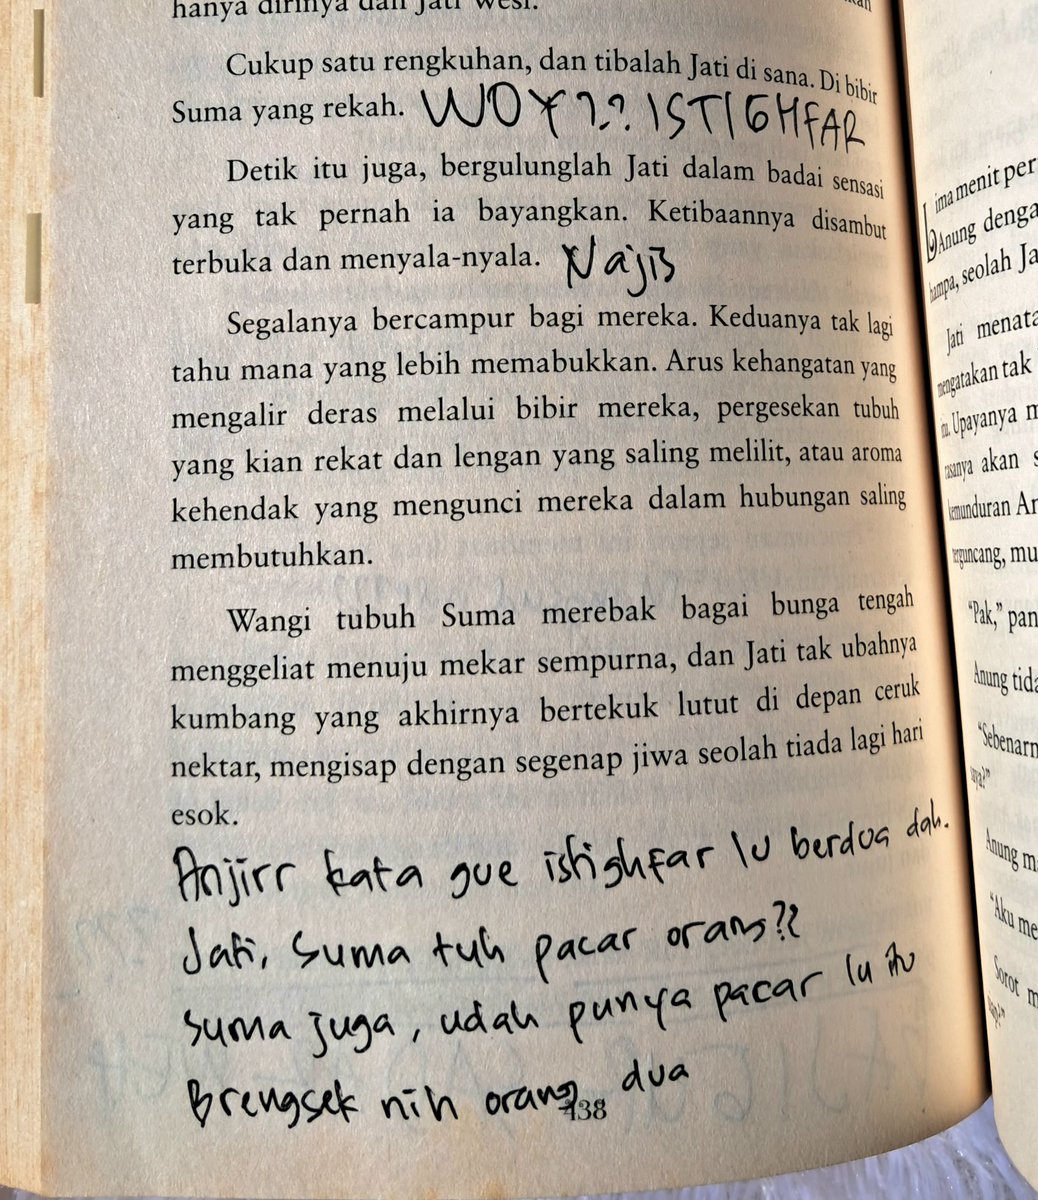 hanya dirinya dan Jati Wesi.
Cukup satu rengkuhan, dan tibalah Jati di sana. Di bibir
Suma yang rekah. WOY??? ISTIGHFAR
Detik itu juga, bergulunglah Jati dalam badai sensasi
yang tak pernah ia bayangkan. Ketibaannya disambut
terbuka dan menyala-nyala. Najis
Segalanya bercampur bagi mereka. Keduanya tak lagi
tahu mana yang lebih memabukkan. Arus kehangatan yang
mengalir deras melalui bibir mereka, pergesekan tubuh
yang kian rekat dan lengan yang saling melilit, atau aroma
kehendak yang mengunci mereka dalam hubungan saling
membutuhkan.
Wangi tubuh Suma merebak bagai bunga tengah
menggeliat menuju mekar sempurna, dan Jati tak ubahnya
kumbang yang akhirnya bertekuk lutut di depan ceruk
nektar, mengisap dengan segenap jiwa seolah tiada lagi hari
esok.
Anjirr kata gue istighfar lu berdua dah.
Jati, Suma tuh pacar orang??
Suma juga, udah punya pacar lu itu
Brengsek nih orang dua
438
ima menit per
Anung denga
hampa, seolah Ja
Jati menata
mengatakan tak
ini. Upayanya m
rasanya akan s
kemunduran An
terguncang, mu
"Pak," pan
Anung tida
"Sebenarn
saya?"
Anung m
"Aku me
Sorot m